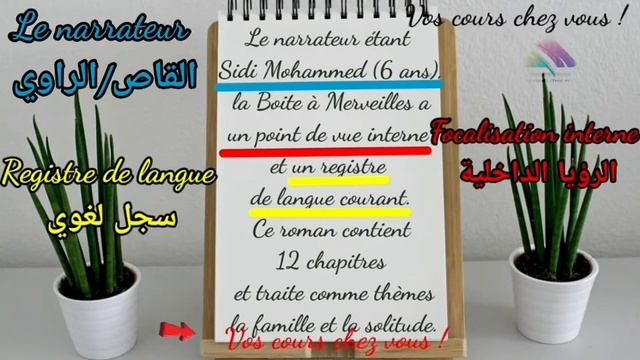 Vos cours chez vous !
Le narrateur
القاص/الراوي
Registre de langue
سجل لغوي
Le narrateur étant
Sidi Mohammed (6 ans),
la Boite à Merveilles a
un point de vue interne
et un registre
de langue courant.
Ce roman contient
12 chapitres
et traite comme thèmes
la famille et la solitude.
Vos cours chez vous !
Focalisation interne
الرؤيا الداخلية